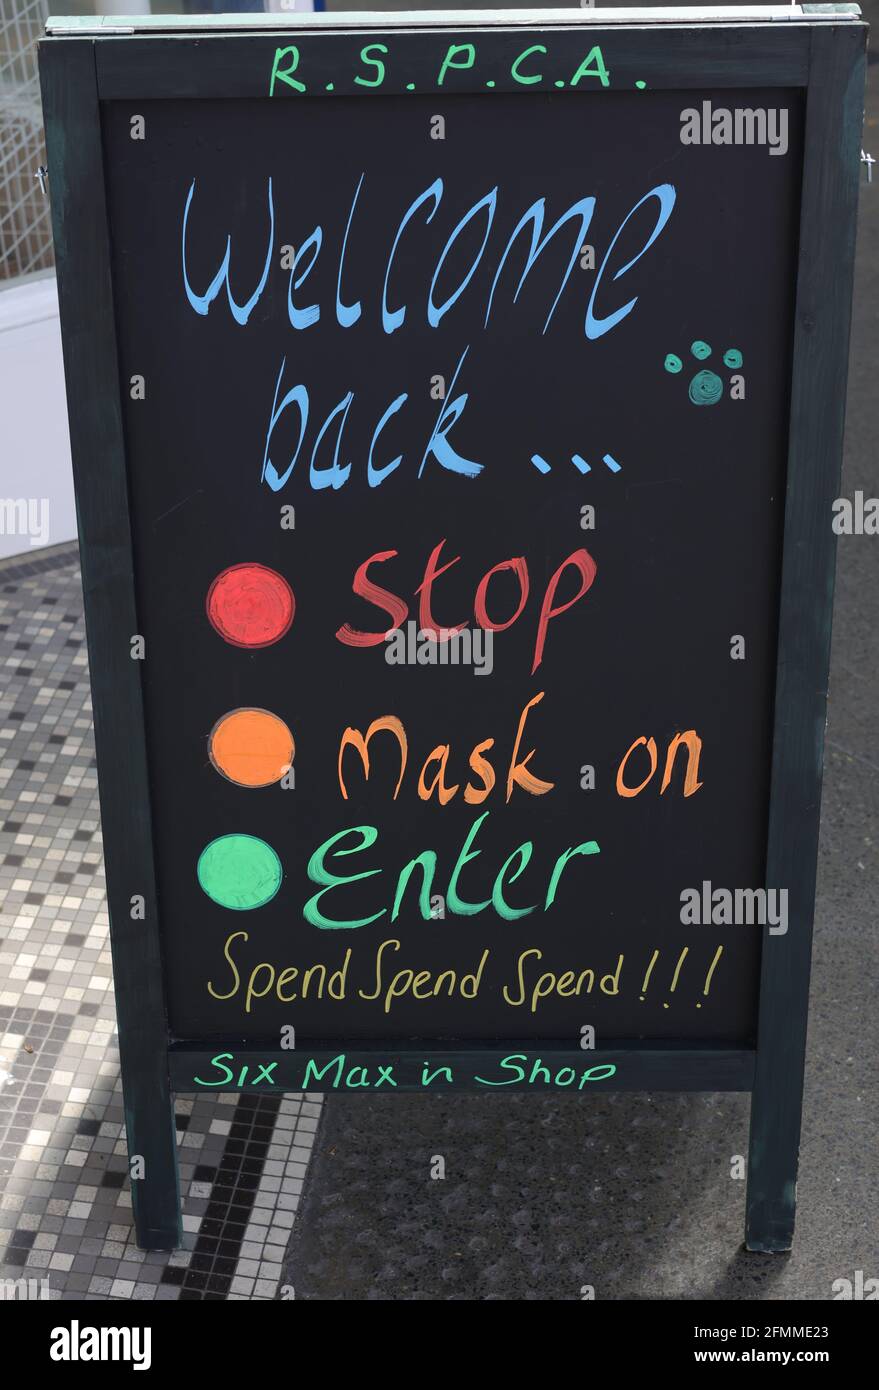 R.S.P.C.A.
Welcome
back ...
Stop
Mask on
Enter
Spend Spend Spend!!!
Six Max in Shop
a
alamy
Image ID: 2FMME23
www.alamy.com